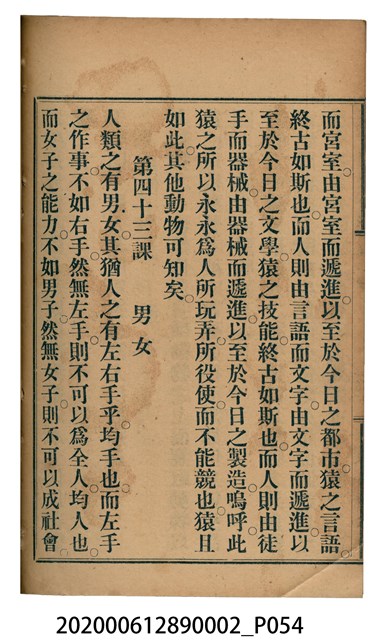 而宮室由宮室而遞進以至於今日之都市猿之言語
終古如斯也而人則由言語而文字由文字而遞進以
至於今日之文學猿之技能終古如斯也而人則由徒
手而器械由器械而遞進以至於今日之製造嗚呼此
猿之所以永永爲人所玩弄所役使而不能競也猿且
如此其他動物可知矣
第四十三課　男女
人類之有男女其猶人之有左右手乎均手也而左手
之作事不如右手然無左手則不可以爲全人均人也
而女子之能力不如男子然無女子則不可以成社會
202000612890002_P054